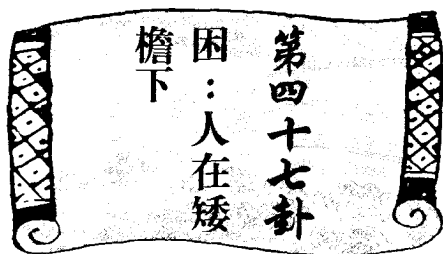 第四十七卦
困：人在矮
檐下